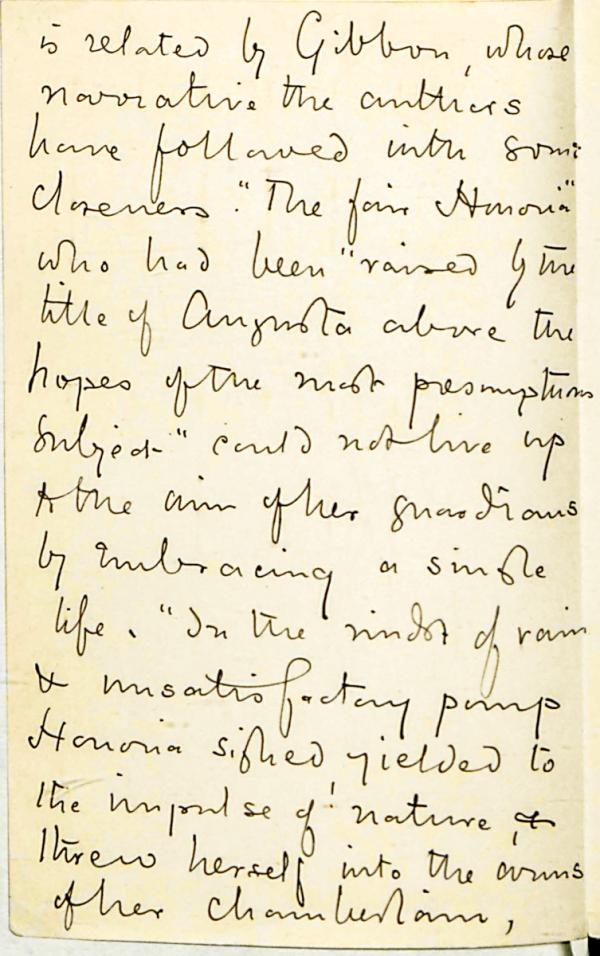 is related by Gibbon, whose
narrative the authors
have followed with some
closeness. "The fair Honoria"
who had been "raised by the
title of Augusta above the
hopes of the most presumptuous
subject" could not live up
to the aim of her guardians
by embracing a single
life. "In the midst of vain
& unsatisfactory pomp
Honoria sighed, yielded to
the impulse of nature, &
threw herself into the arms
of her chamberlain,